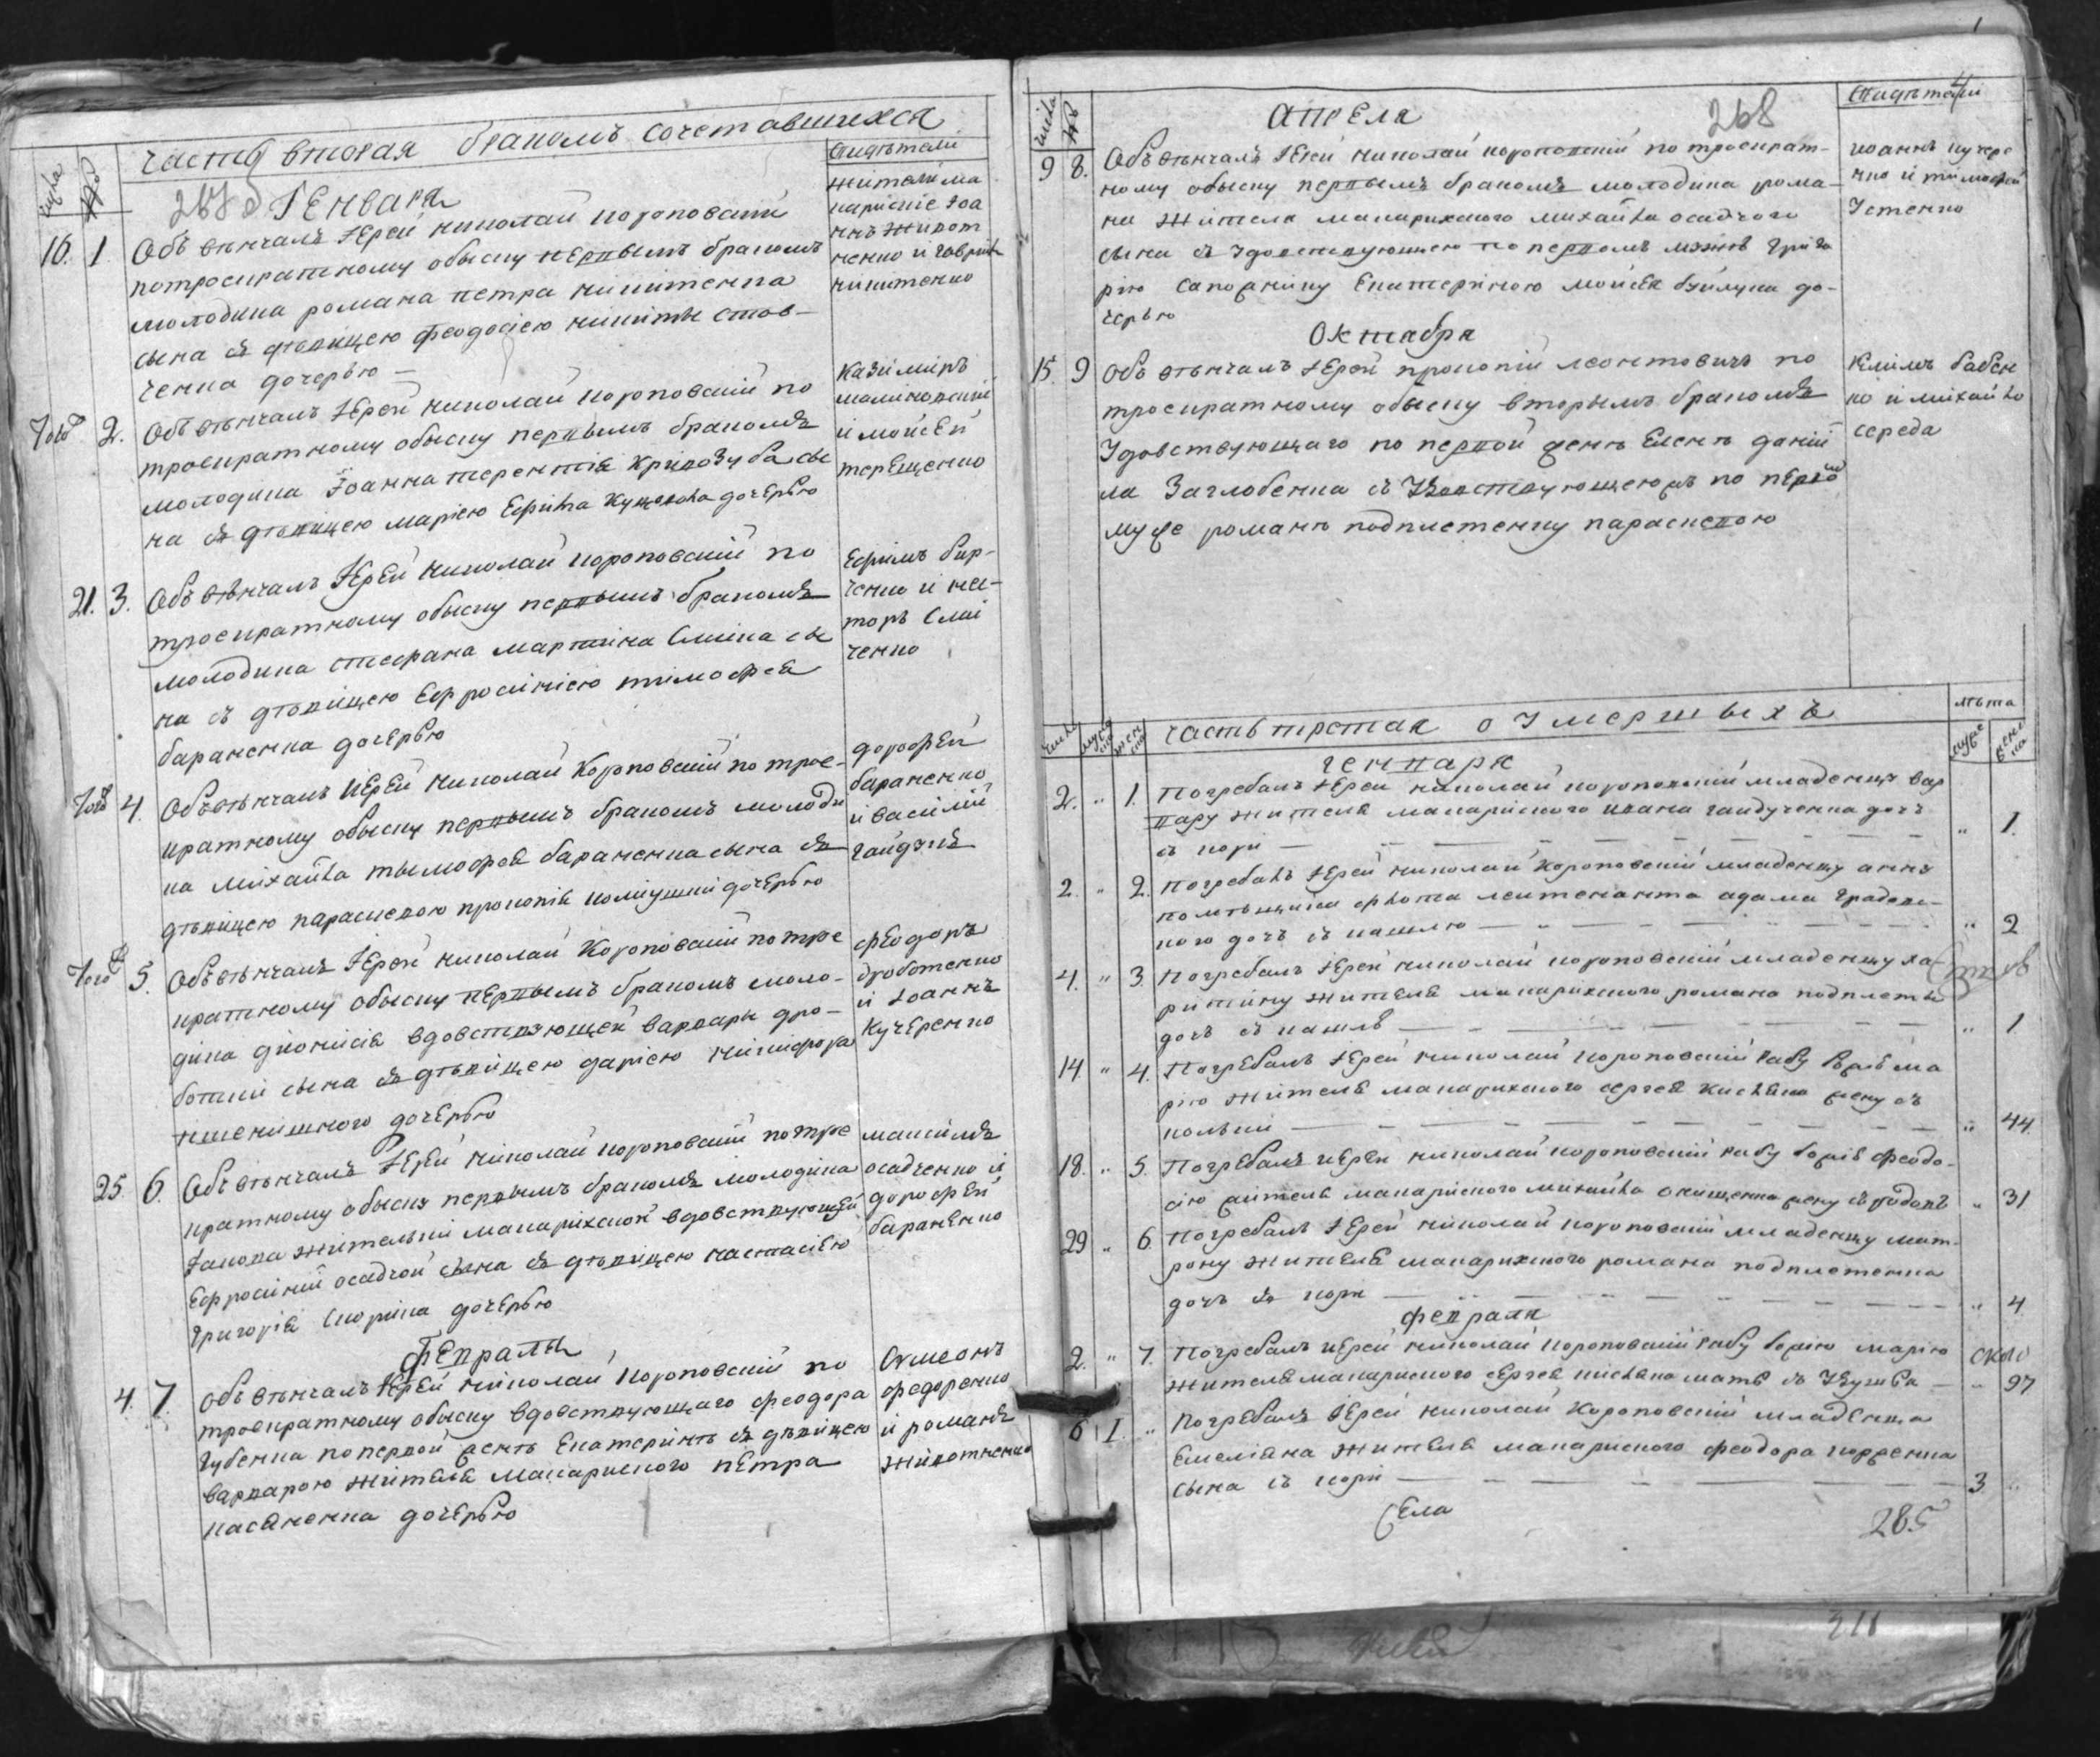 часть вторая бракомъ сочетавшихся
числа №
свидѣтели
Генваря
16. 1. Обвѣнчалъ Іерей николай короповскій
потроекратному обыску первымъ бракомъ
молодика романа петра никитенка
сына съ дѣвицею феодосіею никиты став-
ченка дочерью —
жители ма
карискіе Іоа
ннъ живот
ченко и гаврила
никитенко
Того 2. Обвѣнчалъ Іерей николай короповскій по
троекратному обыску первымъ бракомъ
молодика Іоанна терентія кривозуба сы
на съ дѣвицею маріею Ефима дочерью
казиміръ
малиновскій
и мойсей
терещенко
21. 3. Обвѣнчалъ Іерей николай короповскій по
троекратному обыску первымъ бракомъ
молодика стефана мартина сы
на съ дѣвицею Ефросиніею тимофея
бараненка дочерью
Ефимъ
ченко и нес-
торъ
ченко
Того 4. Обвѣнчалъ Іерей николай Короповскій по трое-
кратному обыску первымъ бракомъ молоди
ка михайла тымофея бараненка сына съ
дѣвицею параскевою прокопія дочерью
дорофей
бараненко
и василій
гайдукъ
Того 5. Обвѣнчалъ Іерей николай Короповскій потрое
кратному обыску первымъ бракомъ моло-
дика діонисія вдовствующей варвары дро-
ботки сына съ дѣвицею даріею никифора
пшенишного дочерью
феодоръ
дроботенко
и Іоаннъ
Кучеренко
25. 6. Обвѣнчалъ Іерей николай короповскій потрое
кратному обыску первымъ бракомъ молодика
Іакова жительки макариской вдовствующей
Ефросиніи осадчой сына съ дѣвицею настасіею
григорія скорика дочерью
максимъ
осадченко и
дорофей
бараненко
февраля
4. 7. Обвѣнчалъ Іерей николай короповскій по
троекратному обыску вдовствующаго феодора
губенка по первой женѣ Екатеринѣ съ дѣвицею
варварою жителя макариского петра
дочерью
Симеонъ
федоренко
и романъ
животченко
числа №
Апреля
268
свидѣтели
9 8. Обвѣнчалъ Іерей николай короповскій по троекрат-
ному обыску первымъ бракомъ молодика рома-
на жителя макарихского михайла осадчого
сына съ удовствующею по первомъ мужѣ Григо
рію Екатериною мойсея дo-
черью
иоаннъ кучере
нко и тимофей
Устенко
Октября
15. 9 Обвѣнчалъ Іерей прокопій леонтовичъ по
троекратному обыску вторымъ бракомъ
Удовствующаго по первой женѣ Еленѣ дании
ла Заглобенка съ Удовствующею по перво
муже романѣ подплетенку параскевою
Климъ бабен
ко и михайло
середа
часть третая о Умершыхъ
числа муже ска жен ска
лѣта
муже жен ска
генваря
2. " 1. Погребалъ Іерей николай короповскій младенца вар
вару жителя макариского ивана гайдученка дочь
съ кори — " 1.
2. " 2. Погребалъ Іерей николай Короповскій младенцу анну
помѣщика флота лейтенанта адама
кого дочь съ кашлю — " 2
4. " 3. Погребалъ Іерей николай короповскій младенцу ха
ритину жителя макарихского романа подплеты
дочь съ кашля — " 1
14. " 4. Погребалъ Іерей николай короповскій рабу божію ма
рію жителя макарихского сергея кисляка жену съ
кольки — " 44.
18. " 5. Погребалъ иерей николай короповскій рабу божію феодо-
сію жителя макариского михайла жену съ родовъ " 31
29 " 6. Погребалъ Іерей николай короповскій младенцу мат-
рону жителя макарихского романа подплетенка
дочь съ кори — " 4.
февраля
2. " 7. Погребалъ иерей николай короповскій рабу божію марію
жителя макариского сергея кисляка мать съ —
около
" 97
6 1. " Погребалъ Іерей николай Короповскій младенца
Емеліана жителя макариского феодора
сына съ кори — 3 "
села
285